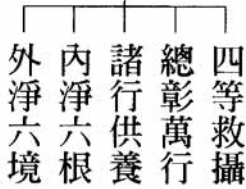 四等救攝
總彰萬行
諸行供養
內淨六根
外淨六境